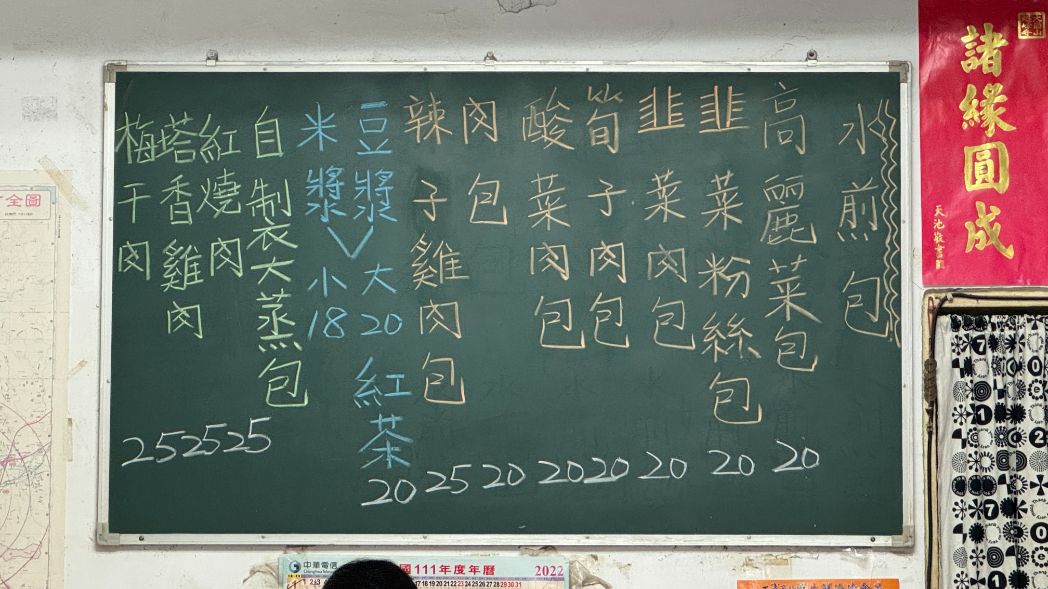 水煎包
高麗菜包 20
韭菜粉絲包 20
韭菜肉包 20
筍子肉包 20
酸菜肉包 20
肉包 20
辣子雞肉包 25
豆漿 大20
米漿 小18
紅茶 20
自制衣大蒸包
紅燒肉 25
塔香雞肉 25
梅干肉 25
諸緣圓成
全圖
中華電信
國111年度年曆
2022